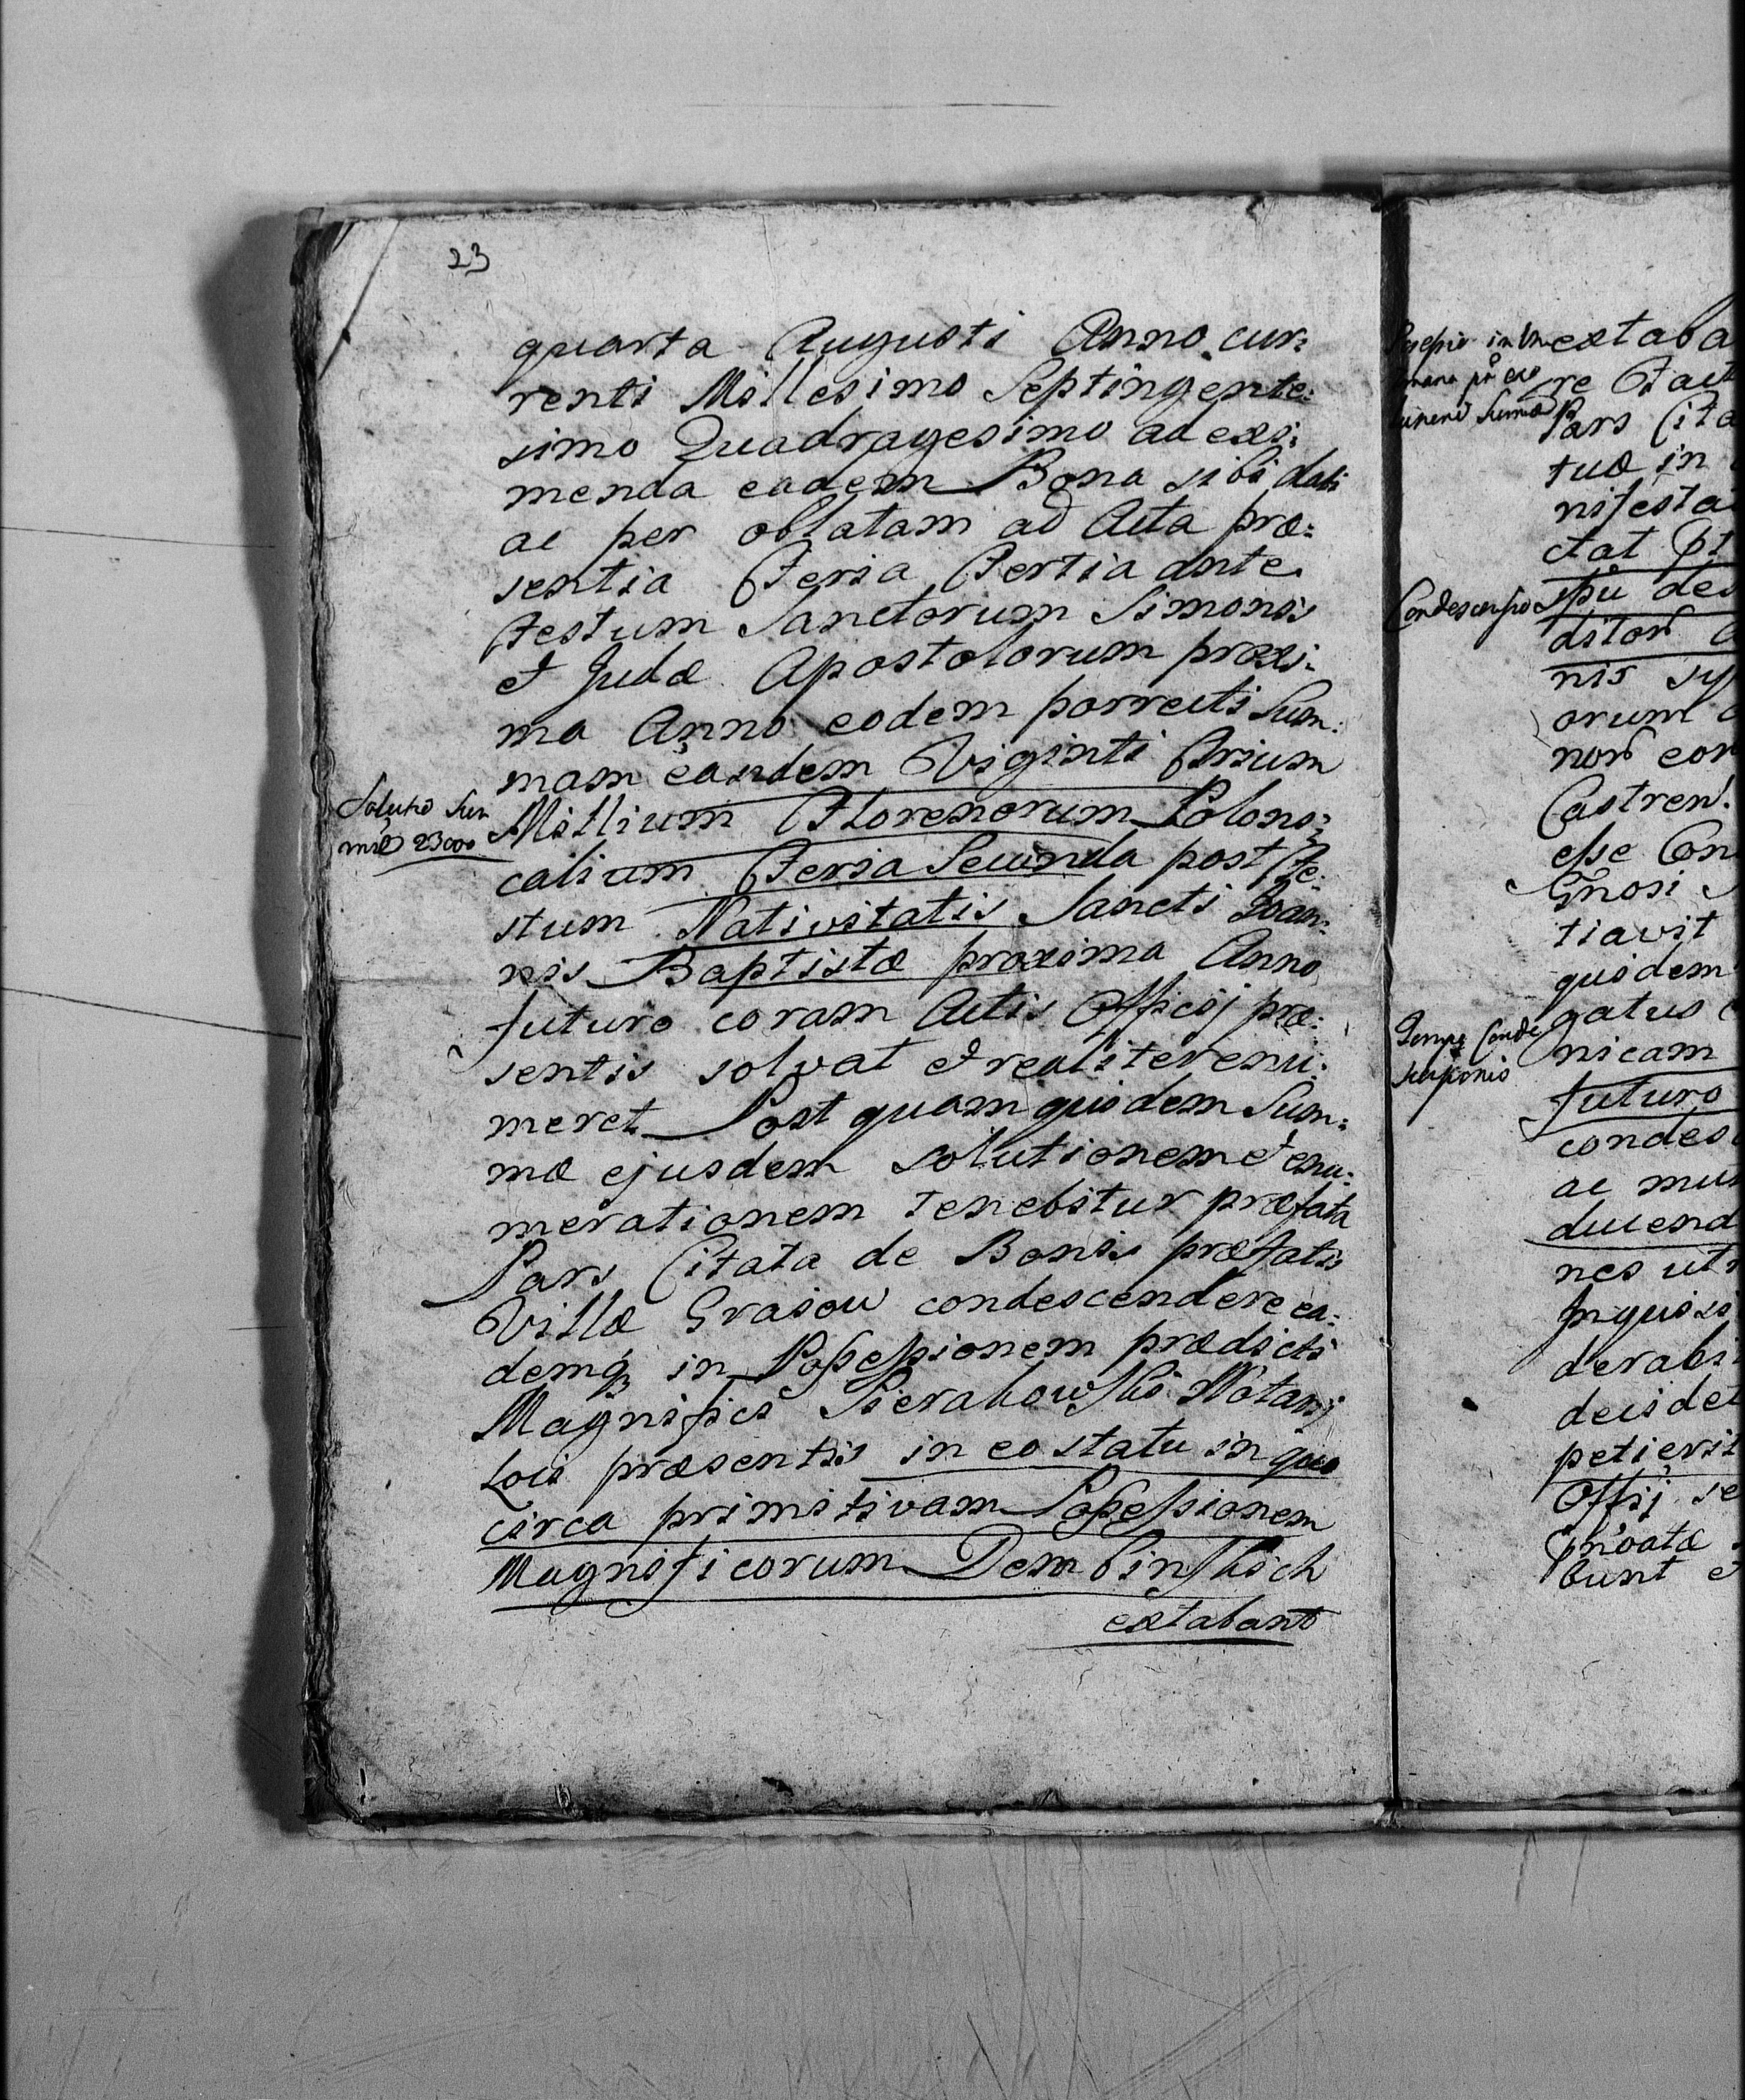 23
quarta Augusti Anno cur:
renti Millesimo Septingente:
simo Quadragesimo ad exi:
menda eadem Bona sibi dati
ac per oblatam ad Acta præ:
sentia Feria Tertia ante
Festum Sanctorum Simonis
et Judæ Apostolorum proxi:
ma Anno eodem porrecti Sum:
mam eandem Viginti Trium
Solutio Sum
mæ 23000
Millium Florenorum Poloni:
calium Feria Secunda post Fe:
stum Nativitatis Sancti Joan:
nis Baptistæ proxima Anno
futuro coram Actis Officij præ:
sentis solvat et realiter enu:
meret Post quam quidem Sum:
mæ ejusdem solutionem et enu:
merationem tenebitur præfata
Pars Citata de Bonis præfatis
Villæ Graiow condescendere ea:
demq in Possessionem prædicti
Magnifici Sierakowski Notarij
Loci præsentis in eo statu in quo
circa primitivam Possessionem
Magnificorum Dembinskich
extabant
extaba
re
Pars Cita
tuæ in
nifesta
ctat
Condescensio
ditor
nis
orum
non con
Castren.
esse Con
Gnosi
tiavit
quidem
gatus
nicam
futuro
condes
ac mu
ducend
nes ut
Inquisi
derabi
petierit
Offij se
bunt et